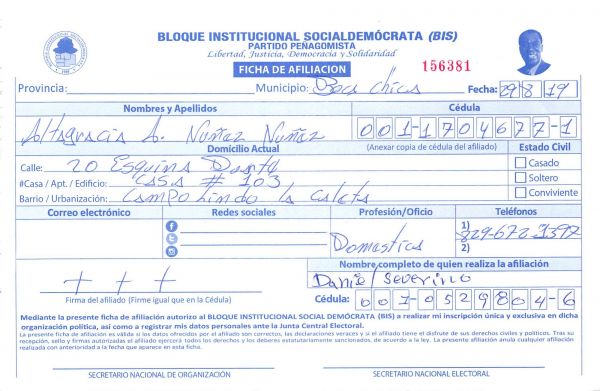 BLOQUE INSTITUCIONAL SOCIALDEMÓCRATA (BIS)
PARTIDO PEÑAGOMISTA
Libertad, Justicia, Democracia y Solidaridad
FICHA DE AFILIACION
156381
Provincia: Municipio: Boca chica Fecha: 29 8 19
Nombres y Apellidos Cédula
Altagracia A. Nuñez Nuñez 001-1704677-1
Domicilio Actual (Anexar copia de cédula del afiliado) Estado Civil
Calle: 20 Esquina Duarte Casado
#Casa / Apt. / Edificio: casa # 103 Soltero
Barrio / Urbanización: Campo Lindo la caleta Conviviente
Correo electrónico Redes sociales Profesión/Oficio Teléfonos
1) 829-672-1397
Domestica 2)
Nombre completo de quien realiza la afiliación
+ + + Daniel Severino
Firma del afiliado (Firme igual que en la Cédula) Cédula: 001-0529804-6
Mediante la presente ficha de afiliación autorizo al BLOQUE INSTITUCIONAL SOCIAL DEMÓCRATA (BIS) a realizar mi inscripción única y exclusiva en dicha
organización política, así como a registrar mis datos personales ante la Junta Central Electoral.
La presente ficha de afiliación es válida si los datos ofrecidos por el afiliado son correctos, las declaraciones veraces y si el afiliado tiene el disfrute de sus derechos civiles y políticos. Tras su
recepción, sello y firmas autorizadas el afiliado ejercerá todos los derechos y los deberes estatutariamente sancionados, de acuerdo a la ley. La presente afiliación anula cualquier afiliación
realizada con anterioridad a la fecha que aparece en esta ficha.
SECRETARIO NACIONAL DE ORGANIZACIÓN SECRETARIO NACIONAL ELECTORAL